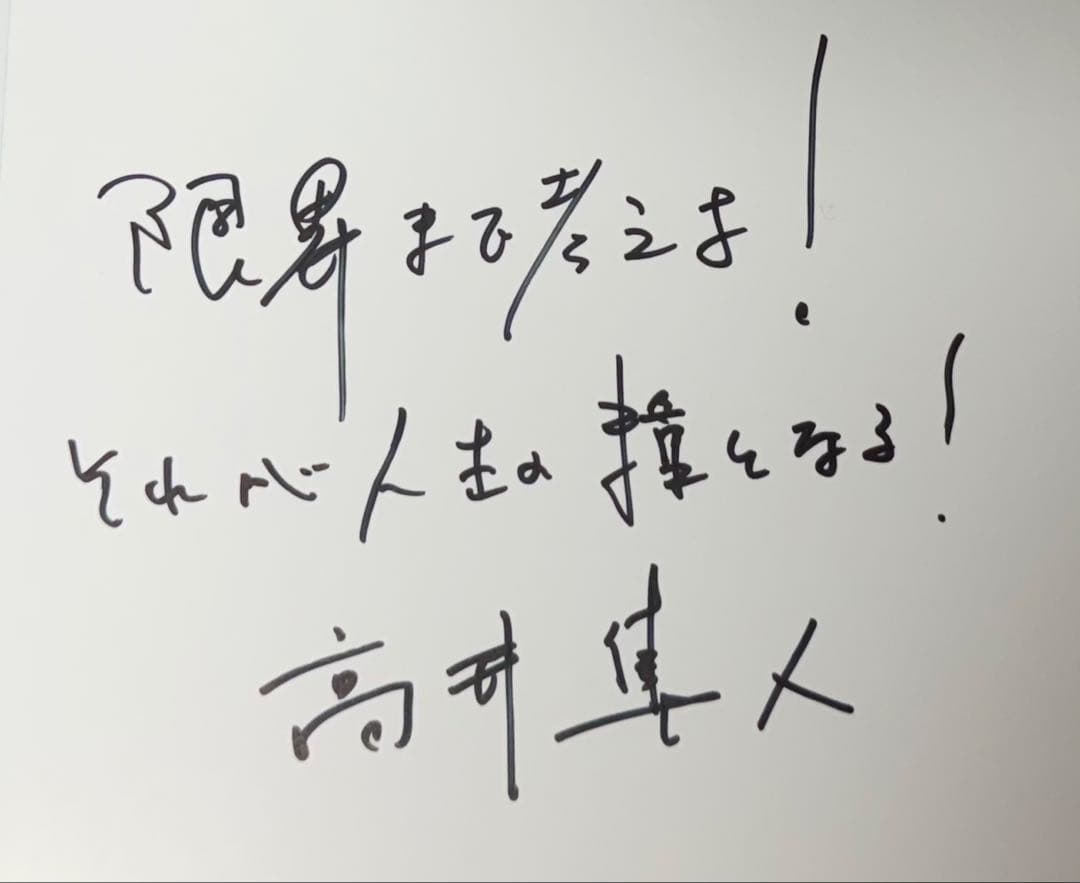 限界まで考えよ!
それが人生の糧となる!
高井隼人